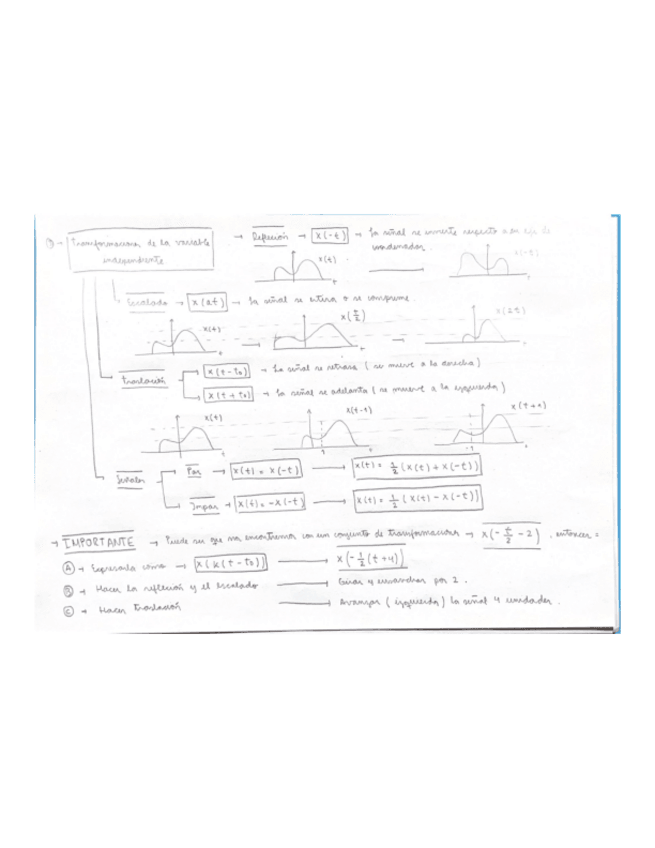 ① → Transformaciones de la variable independiente
→ Reflexión → x(-t) → La señal se invierte respecto a su eje de coordenadas.
x(t) x(-t)
t t
Escalado → x(at) → La señal se estira o se comprime.
x(t) → x(t/2) → x(2t)
t t t
Traslación → x(t-t₀) → La señal se retrasa (se mueve a la derecha)
→ x(t+t₀) → La señal se adelanta (se mueve a la izquierda)
x(t) x(t-1) x(t+1)
t 1 t -1 t
Señales → Par → x(t) = x(-t) → x(t) = 1/2 (x(t) + x(-t))
→ Impar → x(t) = -x(-t) → x(t) = 1/2 (x(t) - x(-t))
→ IMPORTANTE → Puede ser que nos encontremos con un conjunto de transformaciones → x(-t/2 - 2), entonces =
Ⓐ → Expresarla como → x(k(t-t₀)) → x(-1/2(t+4))
Ⓑ → Hacer la reflexión y el escalado → Girar y ensanchar por 2.
Ⓒ → Hacer traslación → Avanzar (izquierda) la señal 4 unidades.